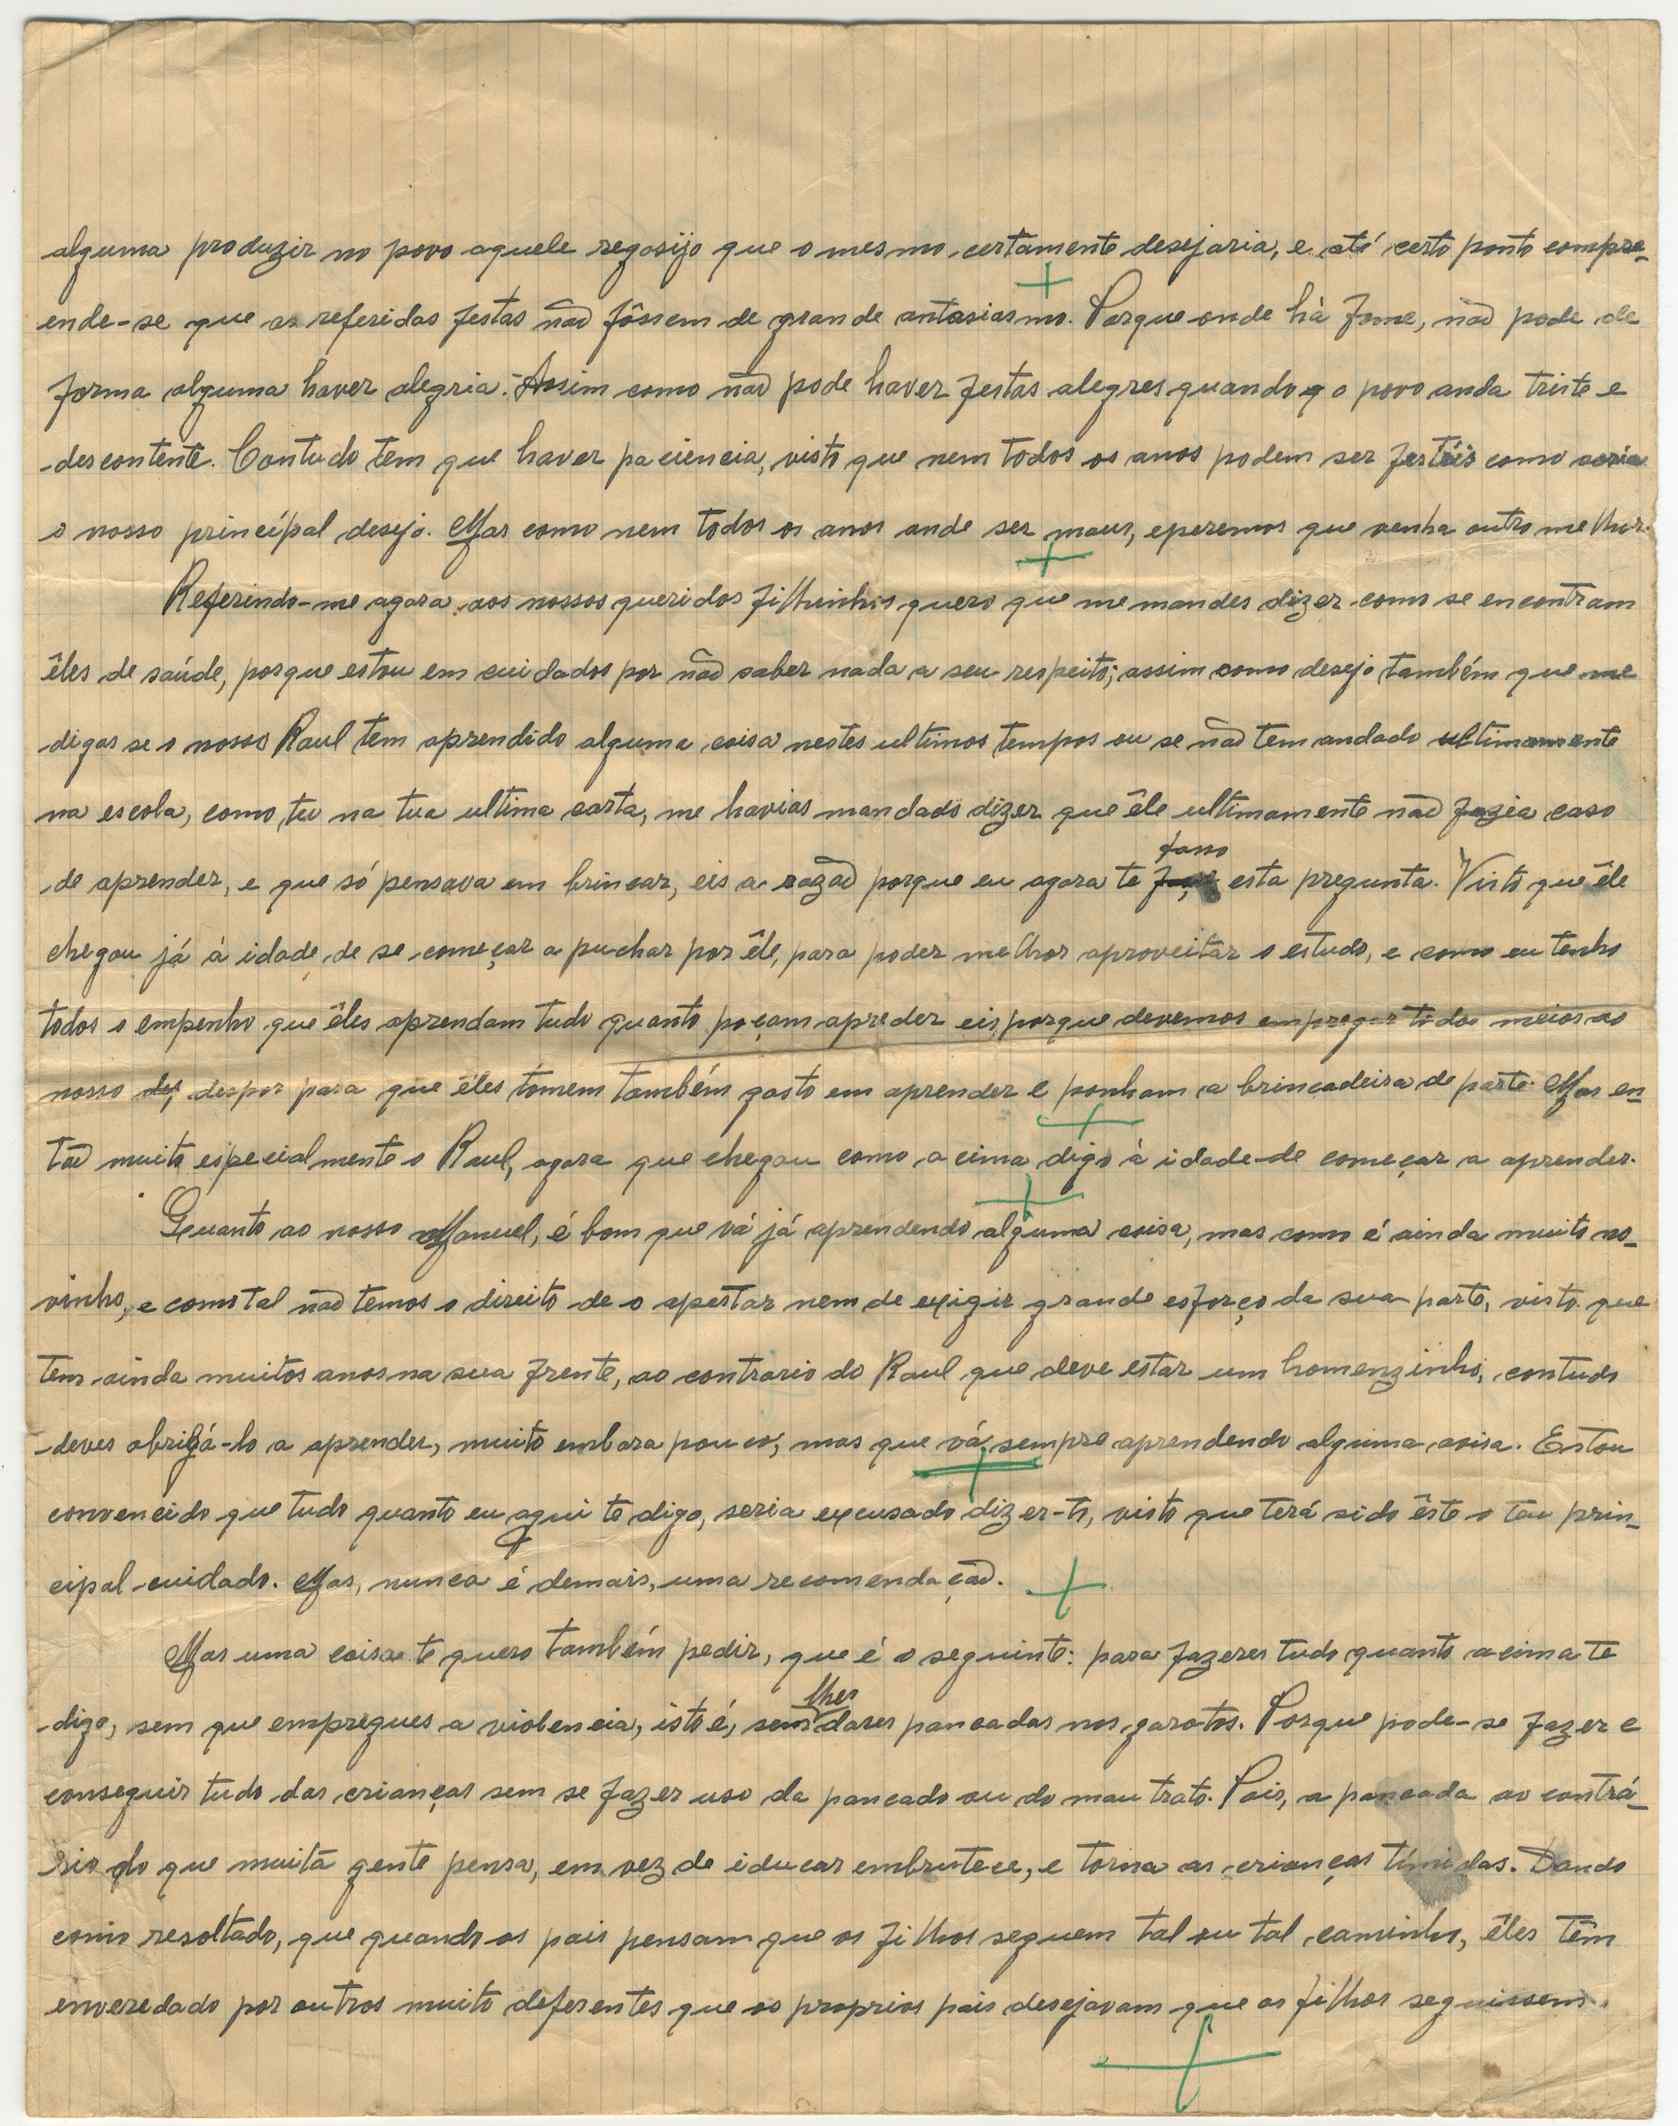 alguma produzir no povo aquele regosijo que o mesmo certamente desejaria, e até certo ponto compre-
ende-se que as referidas festas não fôssem de grande antasiasmo. Porque onde há fome, não pode de
forma alguma haver alegria. Assim como não pode haver festas alegres quando q o povo anda triste e
descontente. Contudo tem que haver paciencia, visto que nem todos os anos podem ser fertéis como seria
o nosso principal desejo. Mas como nem todos os anos ande ser maus, eperemos que venha outro melhor.
Referindo-me agora aos nossos queridos filhinhos quero que me mandes dizer como se encontram
êles de saúde, porque estou em cuidados por não saber nada a seu respeito; assim como desejo também que me
digas se o nosso Raul tem aprendido alguma coisa nestes ultimos tempos ou se não tem andado ultimamente
na escola, como tu na tua ultima carta, me havias mandado dizer que êle ultimamente não fazia caso
de aprender, e que só pensava em brincar, eis a razão porque eu agora te fasso esta pregunta. Visto que êle
chegou já à idade de se começar a puchar por êle, para poder melhor aproveitar o estudo, e como eu tenho
todos o empenho que êles aprendam tudo quanto poçam apreder eis porque devemos empregar todos meios ao
nosso des despor para que êles tomem também gosto em aprender e ponham a brincadeira de parte. Mas en-
tão muito especialmente o Raul, agora que chegou como acima digo à idade de começar a aprender.
Quanto ao nosso Manuel, é bom que vá já aprendendo alguma coisa, mas como é ainda muito no-
vinho, e como tal não temos o direito de o apertar nem de exigir grande esforço da sua parte, visto que
tem ainda muitos anos na sua frente, ao contrario do Raul que deve estar um homenzinho, contudo
deves obrigá-lo a aprender, muito embora pouco, mas que vá sempre aprendendo alguma coisa. Estou
convencido que tudo quanto eu aqui te digo, seria excusado dizer-to, visto que terá sido êste o teu prin-
cipal cuidado. Mas, nunca é demais, uma recomendação.
Mas uma coisa te quero também pedir, que é o seguinte: para fazeres tudo quanto acima te
digo, sem que empregues a violencia, isto é, sem lhes dares pancadas nos garotos. Porque pode-se fazer e
conseguir tudo das crianças sem se fazer uso da pancada ou do mau trato. Pois, a pancada ao contrá-
rio do que muita gente pensa, em vez de iducar embrutece, e torna as crianças tímidas. Dando
como resoltado, que quando os pais pensam que os filhos seguem tal ou tal caminho, êles têm
enveredado por outros muito deferentes que os proprios pais desejavam que os filhos seguissem.